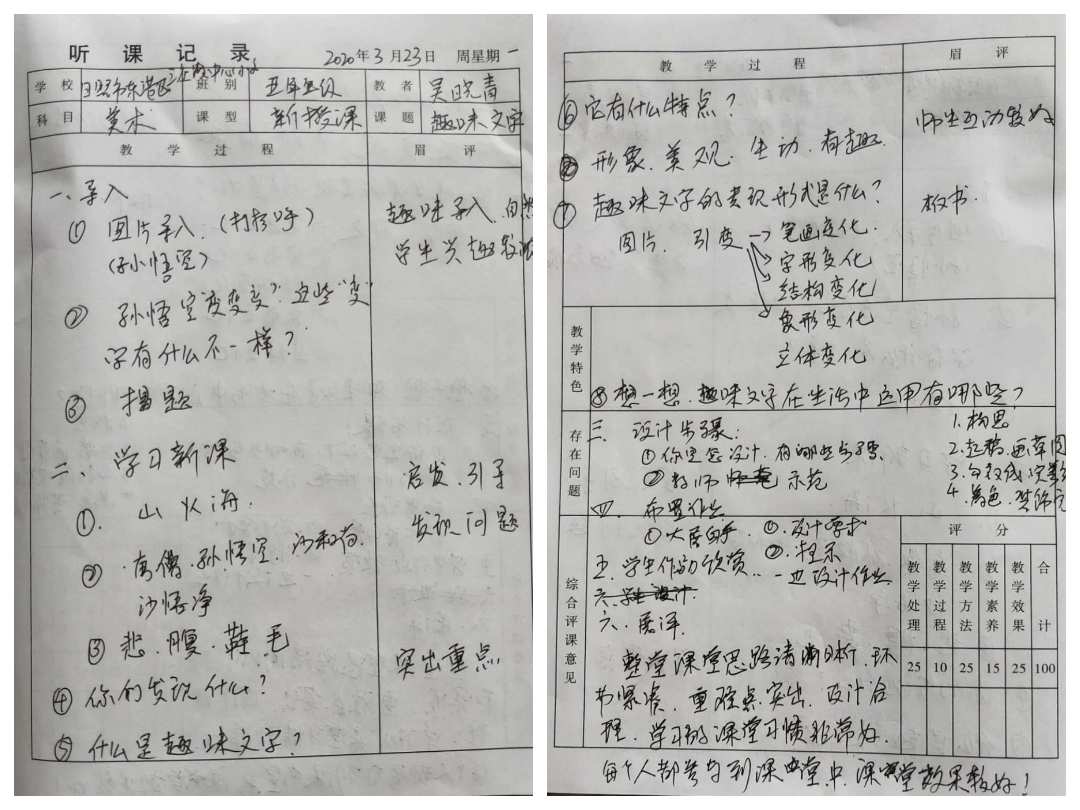 听课记录 2020年3月23日 周星期一
学校 日照市东港区 中心小学 班别 五年五级 教者 吴晓青
科目 美术 课型 新授课 课题 趣味文字
教学过程 眉评
一、导入
① 图片导入.(打招呼) 趣味导入.自然
(孙小悟空) 学生兴趣较浓
② 孙悟空"变变变"?这些"变"
字有什么不一样?
③ 揭题
二、学习新课 启发.引导
①. 山 火 海. 发现问题
② .唐僧.孙悟空.沙和尚.
沙悟净
③ 悲.腹.鞋 毛 突出重点
④ 你们发现什么?
⑤ 什么是趣味文字?
教学过程 眉评
⑥ 它有什么特点? 师生互动较好
形象.美观.生动.有趣.
⑦ 趣味文字的表现形式是什么? 板书.
图片. 引变 → 笔画变化.
字形变化
结构变化
象形变化
立体变化
教学特色
⑧ 想一想.趣味文字在生活中运用有哪些?
存在问题
三. 设计步骤: 1.构思
① 你是怎设计.有哪些步骤. 2.起稿.画草图
② 教师 示范 3.勾轮线.
4.着色.
四. 布置作业
① 大展身手. ①.设计要求
②.
五.学生作品欣赏.. 一边设计作业
六.学生设计.
六.展评.
综合评课意见
评分
教学处理 教学过程 教学方法 教学素养 教学效果 合计
25 10 25 15 25 100
整堂课堂思路清晰.环
节紧凑.重难点突出.设计合
理.学习的课堂习惯非常好.
每个人都参与到课堂中.课堂效果较好!